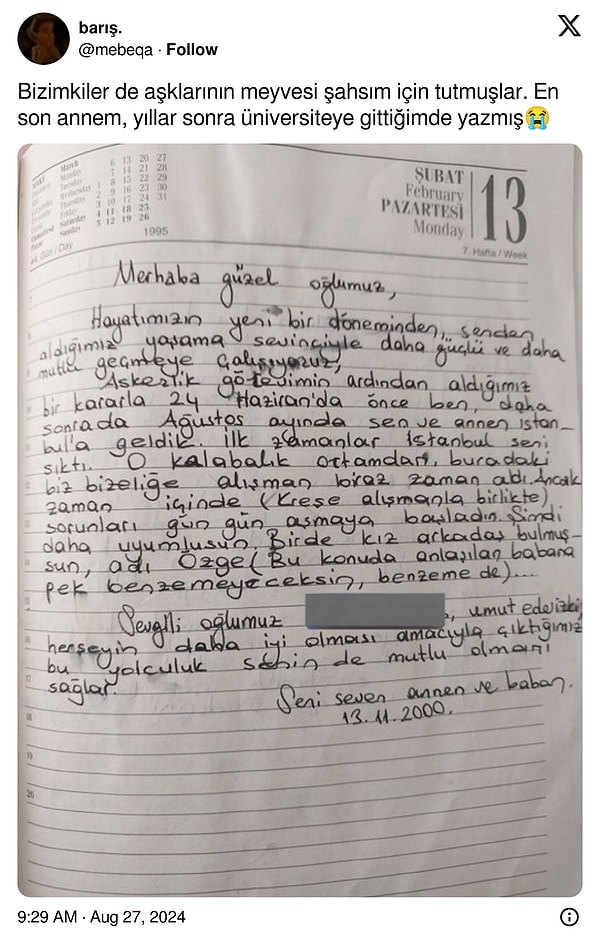 barış.
@mebeqa · Follow
Bizimkiler de aşklarının meyvesi şahsım için tutmuşlar. En
son annem, yıllar sonra üniversiteye gittiğimde yazmış😭
MART March 6 13 20 27
Monday 7 14 21 28
Tuesday 1 8 15 22 29
Wednesday 2 9 16 23 30
Thursday 3 10 17 24 31
Friday 4 11 18 25
Saturday 5 12 19 26
Sunday
1995
44. Gün / Day
ŞUBAT
February
PAZARTESİ
Monday
13
7. Hafta / Week
Merhaba güzel oğlumuz,
Hayatımızın yeni bir döneminden, senden
aldığımız yaşama sevinciyle daha güçlü ve daha
mutlu geçmeye çalışıyoruz,
Askerlik görevimin ardından aldığımız
bir kararla 24 Haziran'da önce ben, daha
sonrada Ağustos ayında sen ve annen İstan-
bul'a geldik. İlk zamanlar İstanbul seni
sıktı. O kalabalık ortamdan, buradaki
biz bizeliğe alışman biraz zaman aldı. Ancak
zaman içinde (Kreşe alışmanla birlikte)
sorunları gün gün aşmaya başladın. Şimdi
daha uyumlusun. Birde kız arkadaş bulmuş-
sun, adı Özge (Bu konuda anlaşılan babana
pek benzemeyeceksin, benzeme de)....
Sevgili oğlumuz , umut ederizki,
herşeyin daha iyi olması amacıyla çıktığımız
bu yolculuk senin de mutlu olmanı
sağlar.
Seni seven annen ve baban.
13.11.2000.
15
17
18
19
20
9:29 AM · Aug 27, 2024